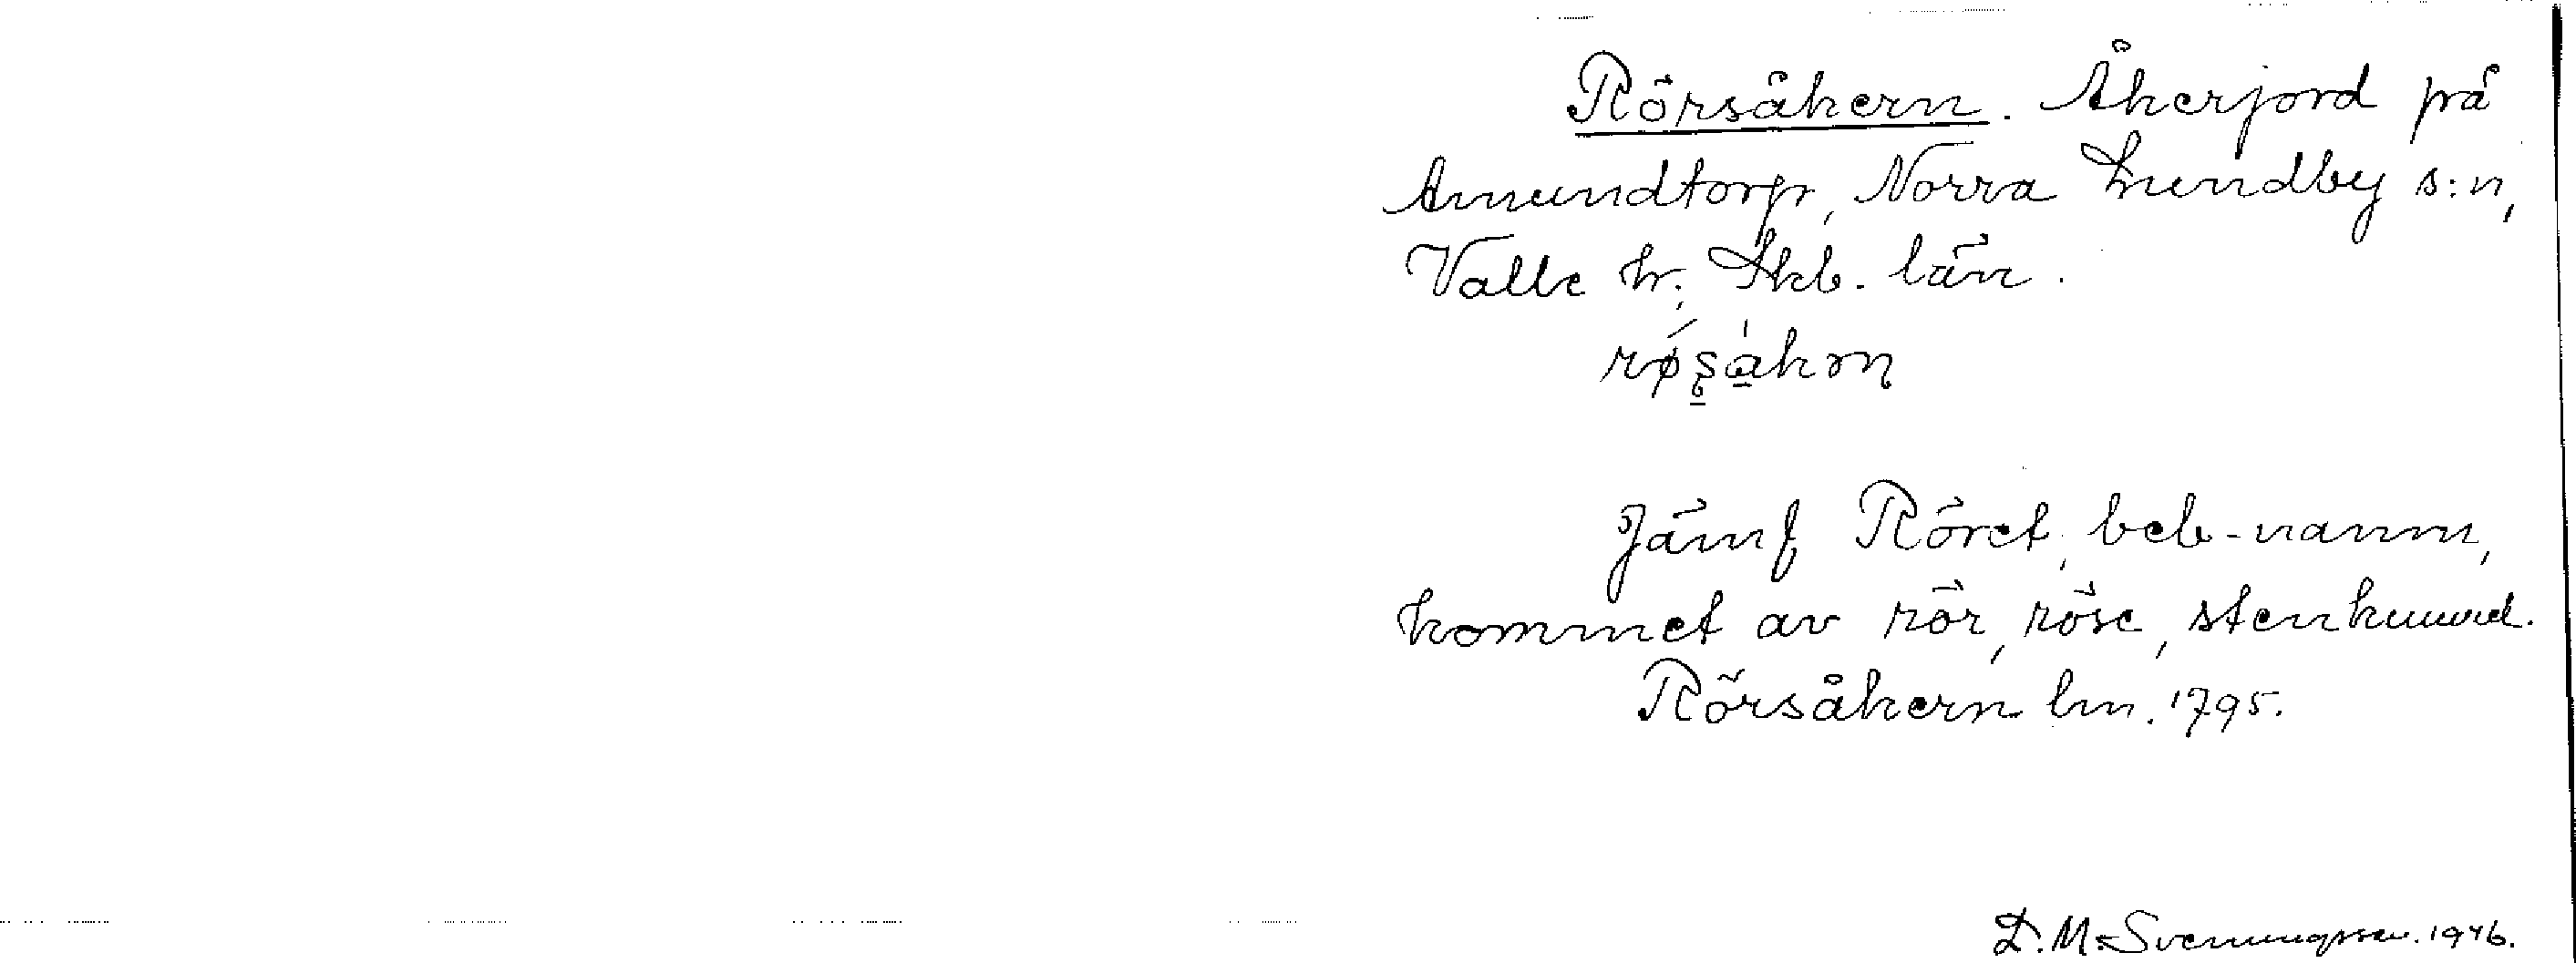 Rörsåkern. Åkerjord på
Amundtorp, Norra Lundby s:n,
Valle h., Skb. län.
røsåkɤn
Jämf Röret, beb-namn,
kommet av rör, röse, stenkummel.
Rörsåkern lm. 1795.
D. M. Svenungsson. 1946.